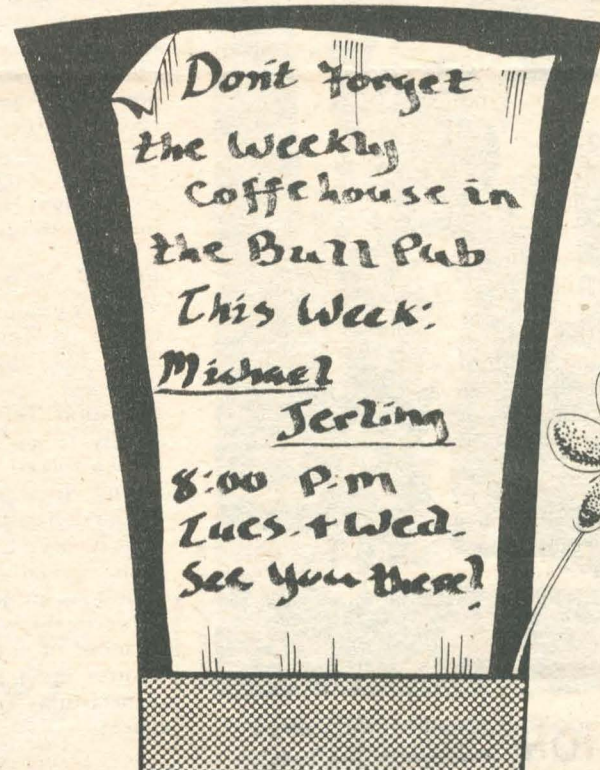 Don't Forget
the Weekly
Coffehouse in
the Bull Pub
This Week:
Michael
Jerling
8:00 P.m
Tues. + Wed.
See you there!